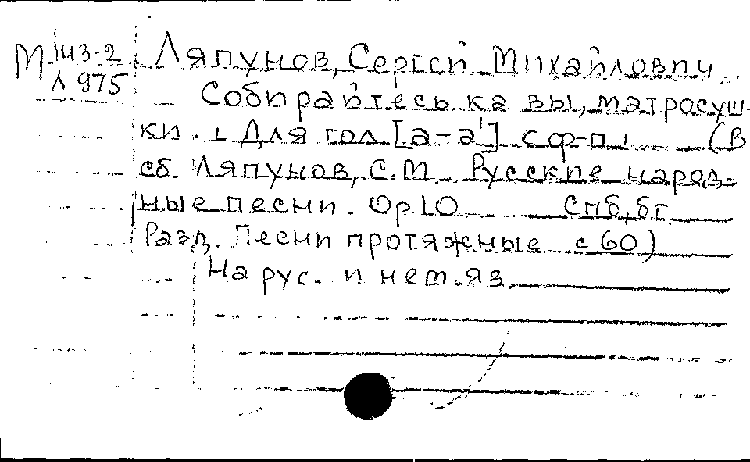 М 143-2 Ляпунов, Сергей Михайлович
Л 975
Собирайтесь-ка вы, матросуш-
ки. Для гол [а-а'] с ф-п. (В
сб. Ляпунов, С.М. Русские народ-
ные песни. Op 10 Спб, б.г.
Разд. Песни протяжные с 60)
На рус. и нем. яз.